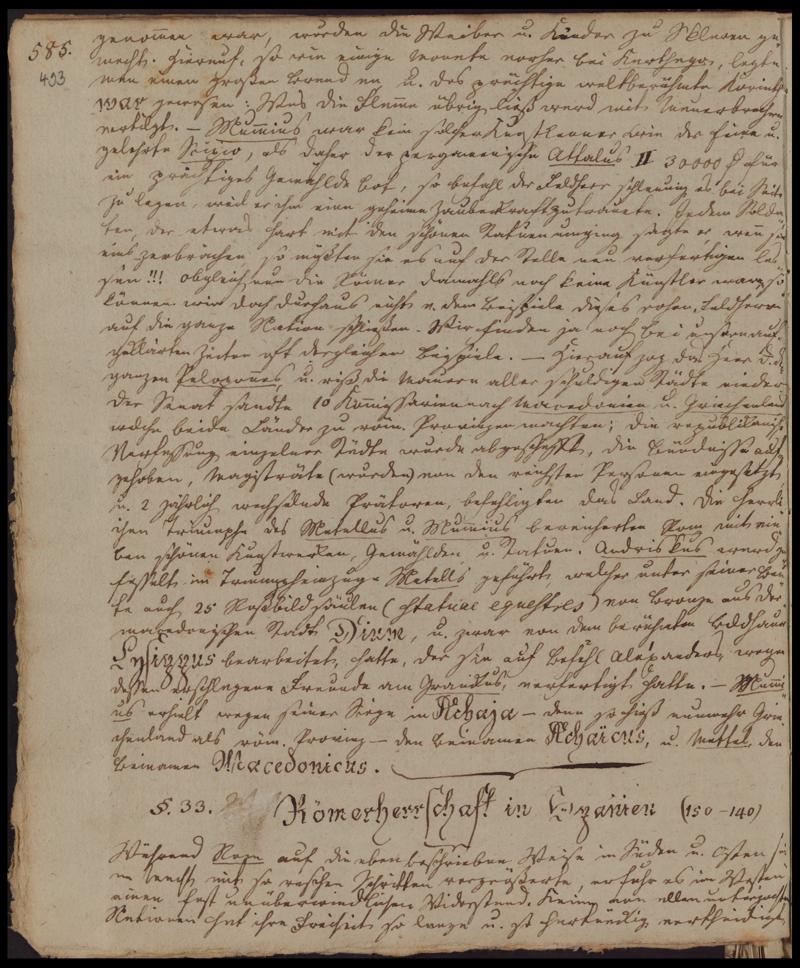 585.
493
genommen war, wurden die Weiber u. Kinder zu Sklaven ge
macht. Hierauf, so wie einige Monate vorher bei Karthago, legte
man einen großen Brand an u. das prächtige weltberühmte Korinth
war gewesen: Was die Flamme übrig ließ ward mit Mauerbrechern
vertilgt. – Mummius war kein solcher Kunstkenner wie der feine u.
gelehrte Scipio, als daher der pergamenische Attalus II 30000 für
ein prächtiges Gemählde bot, so befahl der Feldherr schleunig es bei Seite
zu legen, weil er ihm eine geheime Zauberkraft zutrauete. Jedem Solda
ten, der etwas hart mit den schönen Statuen umging sagte er, wenn sie
eins zerbrächen so müßten sie es auf der Stelle neu verfertigen las
sen!!! Obgleich nun die Römer damahls noch keine Künstler waren, so
können wir doch durchaus nicht v. dem Beispiele dieses rohen Feldherrn
auf die ganze Nation schließen. Wir finden ja noch bei unsern auf
geklärten Zeiten oft dergleichen Beispiele. – Hierauf zog das Heer d. d.
ganzen Peloponnes, u. riß die Mauern aller schuldigen Städte nieder
Der Senat sandte 10 Kommissarien nach Macedonien u. Griechenland
welche beide Länder zu röm. Provinzen machten; die republikanische
Verfassung einzelner Städte wurde abgeschafft, die Bündnisse auf
gehoben, Magisträte (wurden) von den reichsten Personen eingesetzt
u. 2 jährlich wechselnde Prätoren, befehligten das Land. Die herrli
chen Triumphe des Metellus u. Mummius bereicherten Rom mit vie
len schönen Kunstwerken, Gemählden u. Statuen. Andriskus ward ge
fesselt im Triumpheinzuge Metells geführt, welcher unter seiner Beu
te auch 25 Roßbildsäulen (statuae equestres) von Bronze aus der
macedonischen Stadt Dium, u. zwar von dem berühmten Bildhauer
Lysippus bearbeitet, hatte, der sie auf Befehl Alexanders, wegen
dessen erschlagene Freunde am Granikus, verfertigt hatte. – Mummi
us erhielt wegen seiner Siege in Achaja – denn so hieß nunmehr Grie
chenland als röm. Provinz – den Beinamen Achaicus, u. Mettel. den
Beinamen Macedonicus.
§. 33. Römerherrschaft in Spanien (150–140)
Während Rom auf die eben beschriebene Weise in Süden u. Osten
Macht mit so raschen Schritten vergrößerte, erfuhr es im Westen
einen fast unüberwindlichen Widerstand. Keine von allen unterjochten
Nationen hat ihre Freiheit so lange u. so hartnäckig vertheidigt